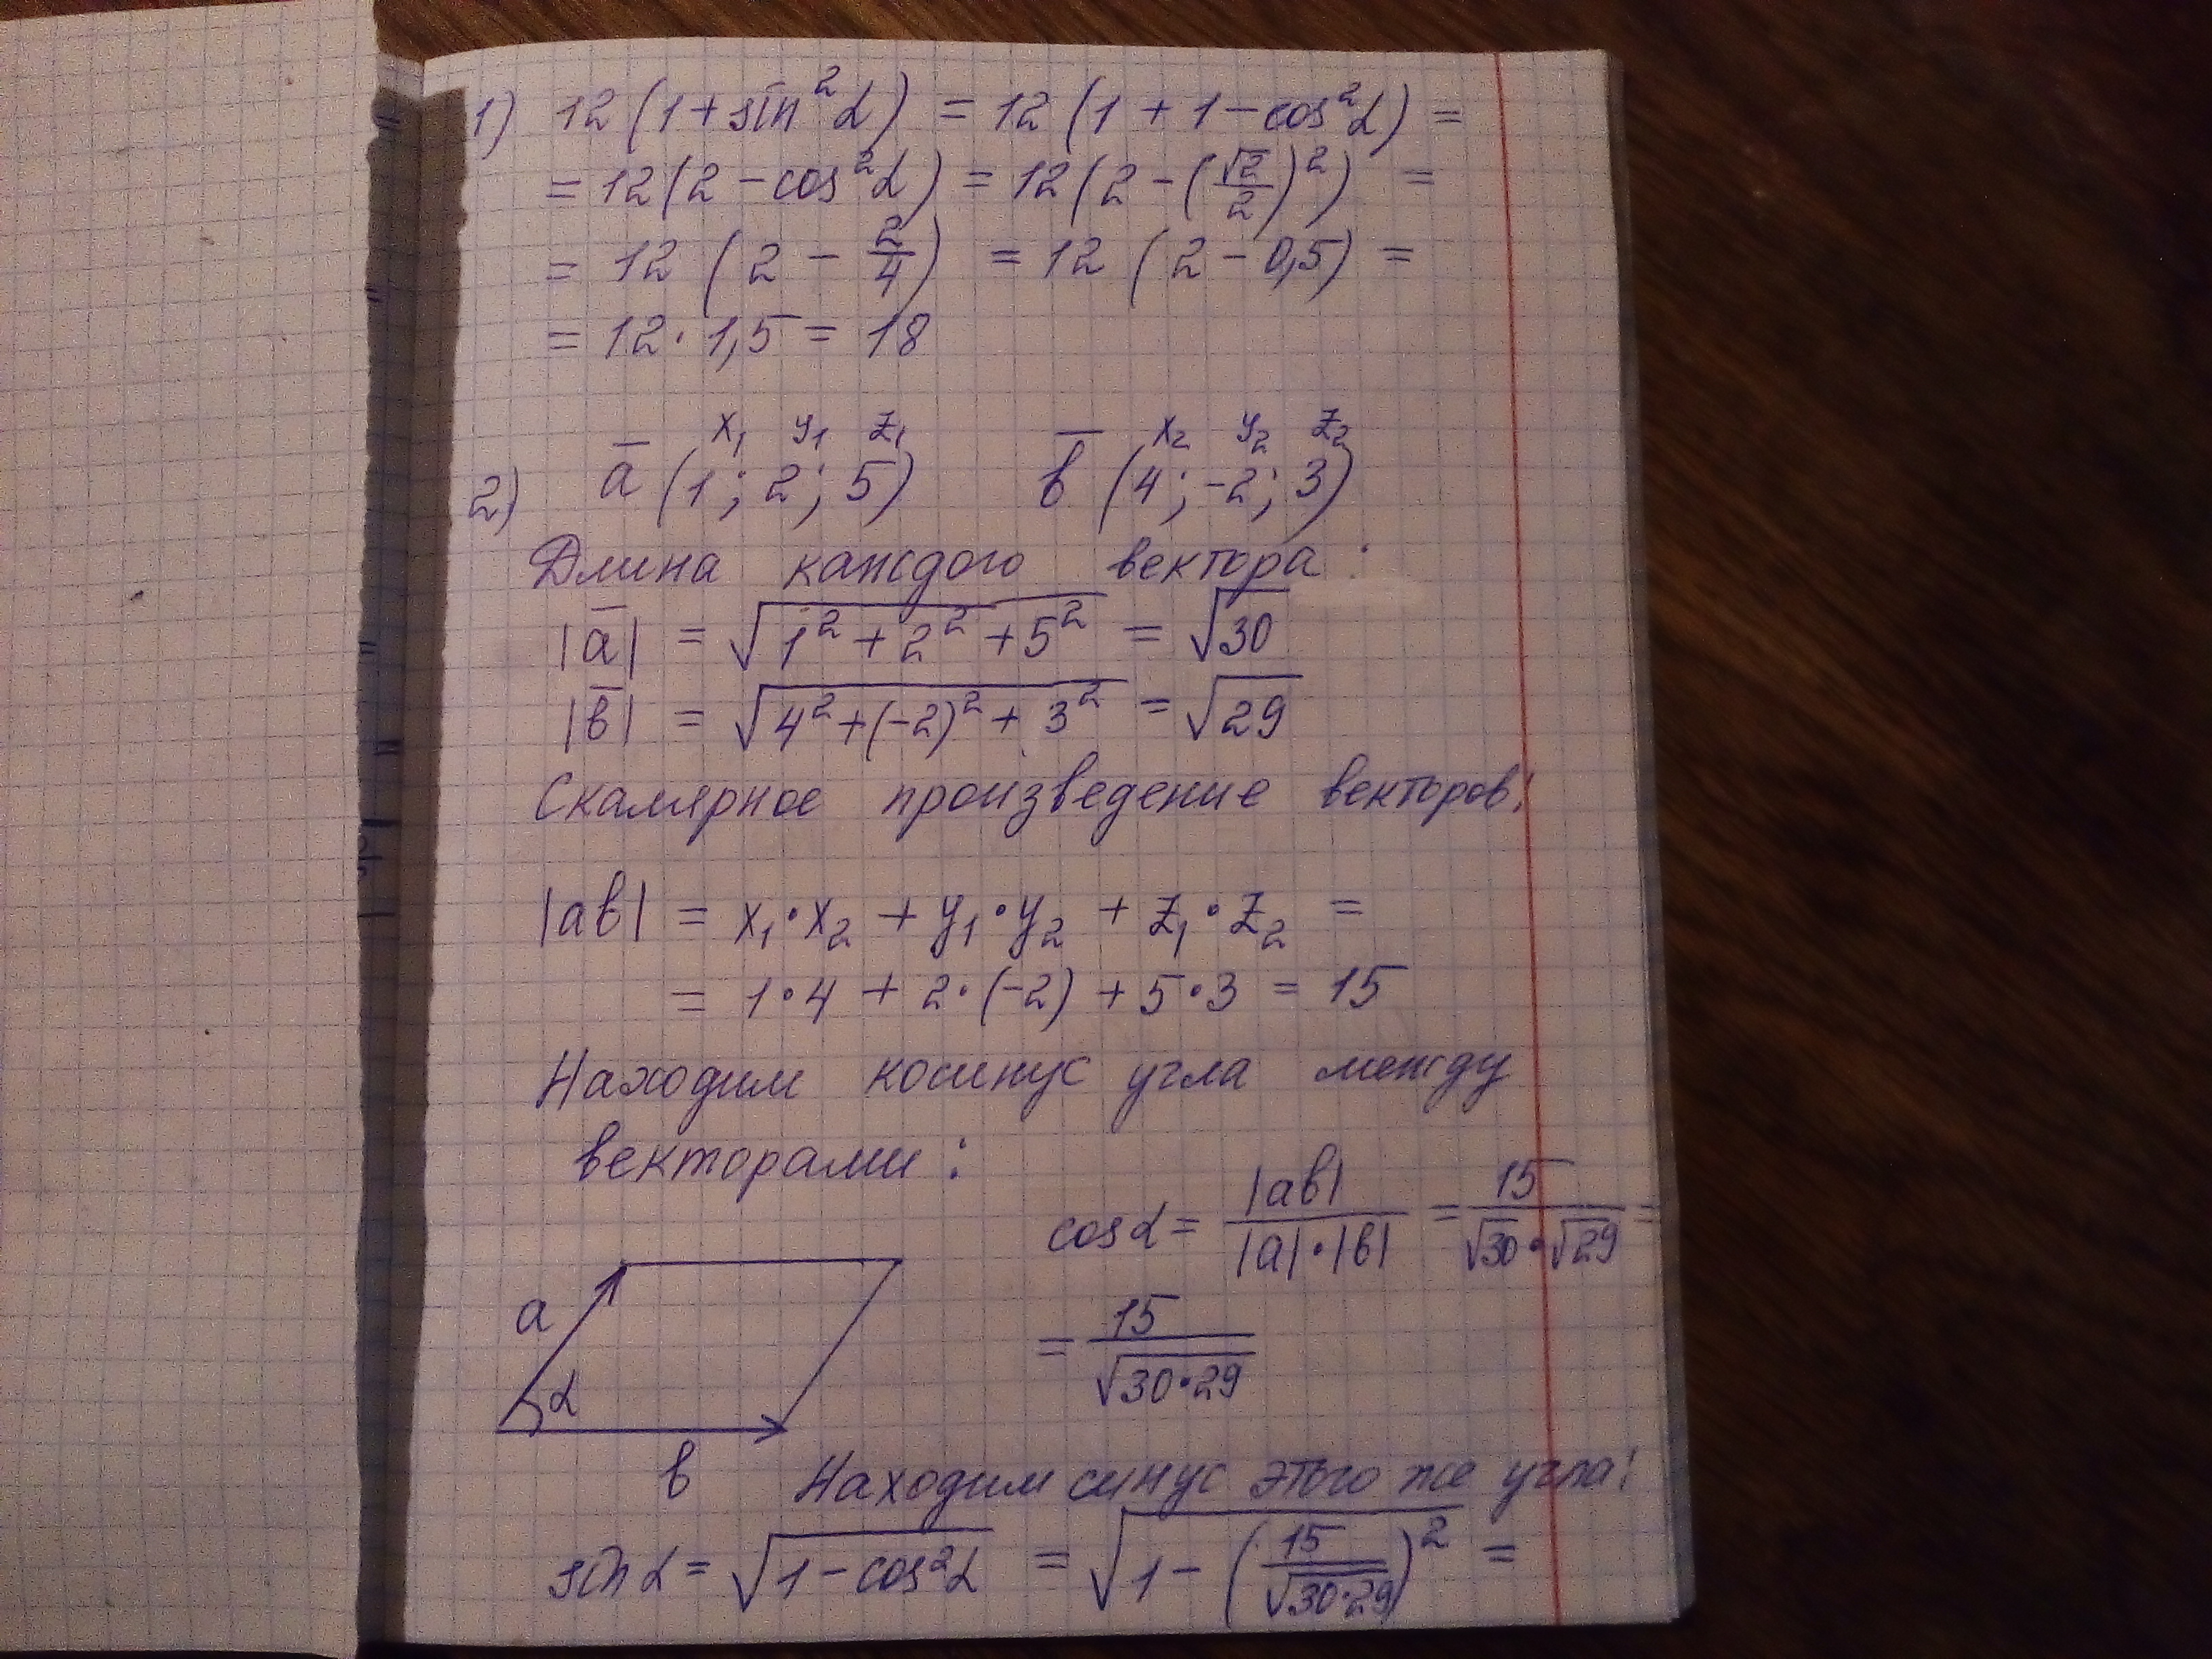 1) 12(1+sin²α) = 12(1+1-cos²α) =
= 12(2-cos²α) = 12(2-(√2/2)²) =
= 12(2-2/4) = 12(2-0,5) =
= 12·1,5 = 18
x₁ y₁ z₁ x₂ y₂ z₂
2) a̅(1; 2; 5) в̅(4; -2; 3)
Длина каждого вектора:
|a̅| = √(1²+2²+5²) = √30
|в̅| = √(4²+(-2)²+3²) = √29
Скалярное произведение векторов:
|aв| = x₁·x₂ + y₁·y₂ + z₁·z₂ =
= 1·4 + 2·(-2) + 5·3 = 15
Находим косинус угла между
векторами:
cosα = |aв|/(|a|·|в|) = 15/(√30·√29) =
= 15/√(30·29)
a
α
в
Находим синус этого же угла:
sinα = √(1-cos²α) = √(1-(15/√(30·29))²) =